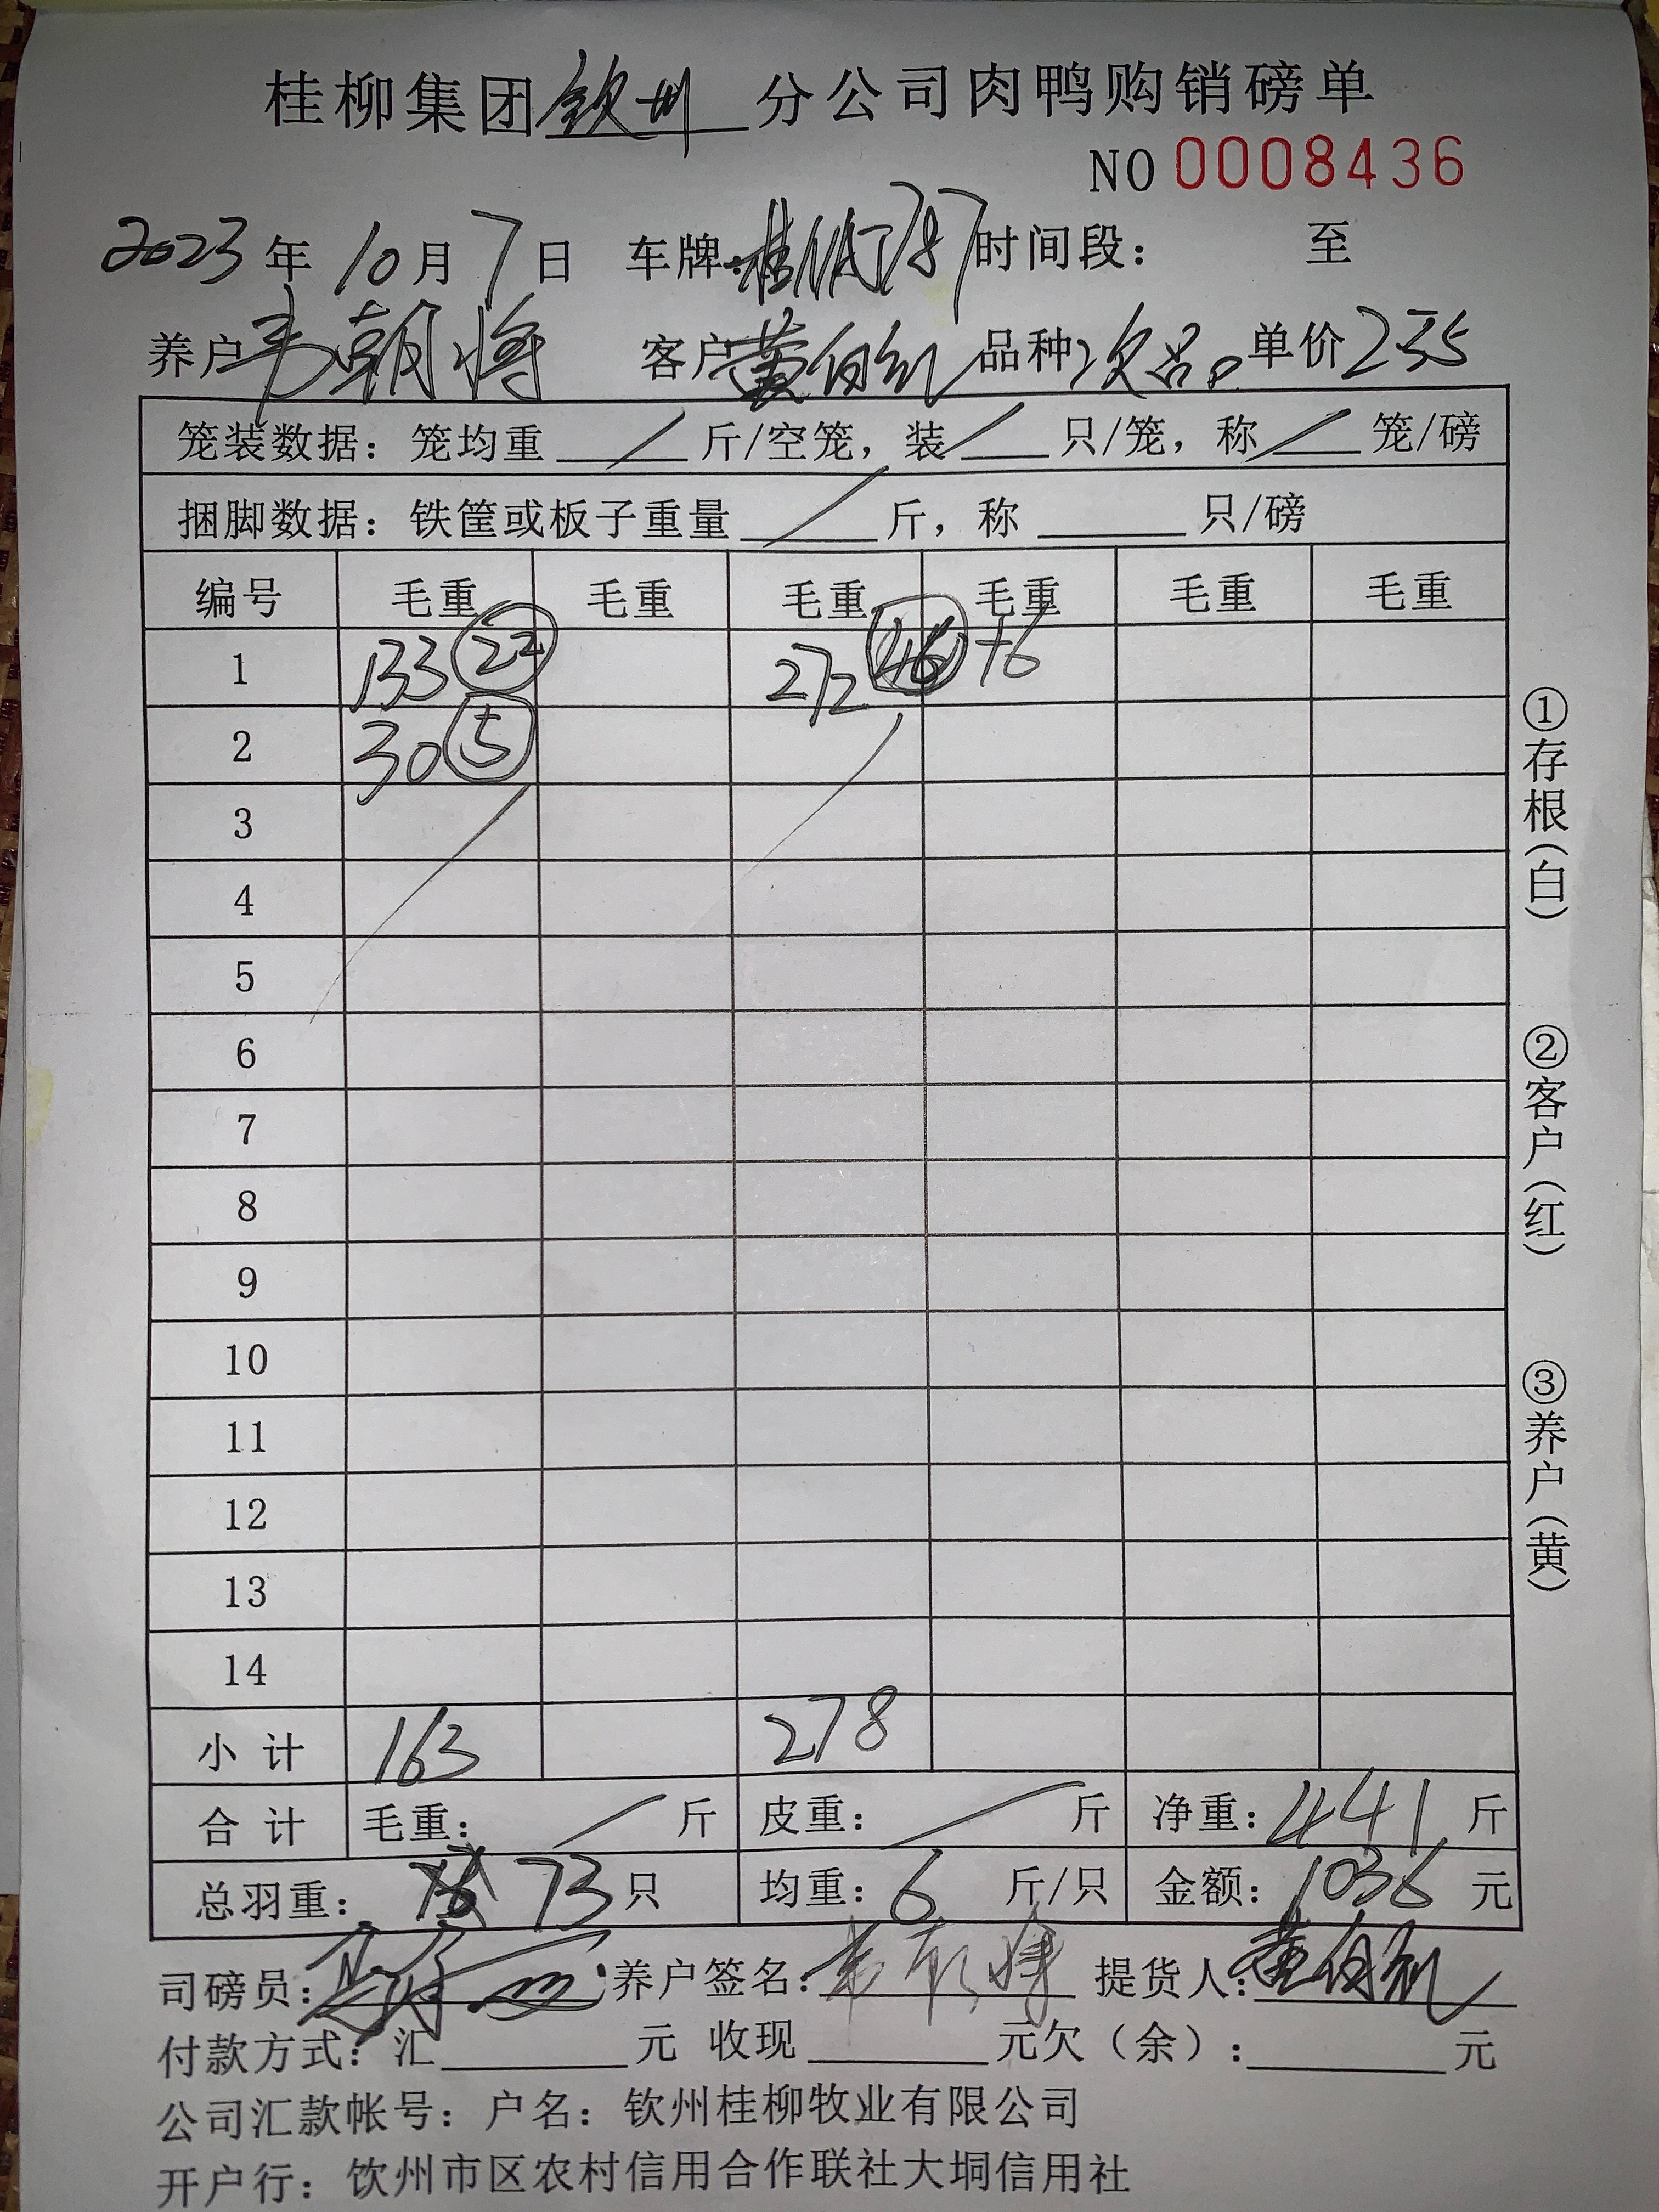 桂柳集团钦州分公司肉鸭购销磅单
NO 0008436
2023年10月7日 车牌:桂 时间段: 至
养户韦朝将 客户黄 品种次品 单价235
笼装数据:笼均重/斤/空笼,装/只/笼,称/笼/磅
捆脚数据:铁筐或板子重量/斤,称 只/磅
编号 毛重 毛重 毛重 毛重 毛重 毛重
1 133 22 272 46 +6
2 30 5
3
4
5
6
7
8
9
10
11
12
13
14
小计 163 278
合计 毛重:/斤 皮重:/斤 净重:441斤
总羽重: 73只 均重:6斤/只 金额:1036元
司磅员: 养户签名: 提货人:黄
付款方式:汇 元 收现 元欠(余): 元
公司汇款帐号:户名:钦州桂柳牧业有限公司
开户行:钦州市区农村信用合作联社大垌信用社
①存根(白)
②客户(红)
③养户(黄)